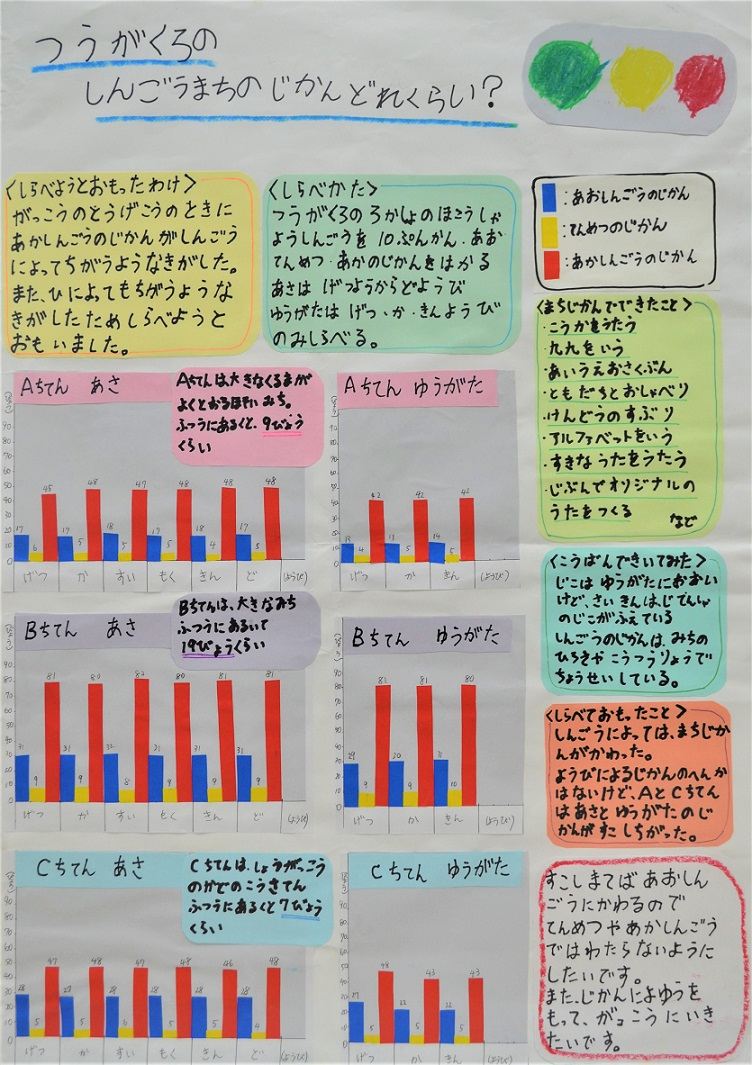 つうがくろの
しんごうまちのじかんどれくらい?
〈しらべようとおもったわけ〉
がっこうのとうげこうのときに
あかしんごうのじかんがしんごう
によってちがうようなきがした。
また、ひによってもちがうような
きがしたためしらべようと
おもいました。
〈しらべかた〉
つうがくろの3かしょのほこうしゃ
ようしんごうを10ぷんかん、あお
てんめつ、あかのじかんをはかる
あさは げつようからどようび
ゆうがたは げつ、か、きんようび
のみしらべる。
:あおしんごうのじかん
:てんめつのじかん
:あかしんごうのじかん
〈まちじかんでできたこと〉
・こうかをうたう
・九九をいう
・あいうえおさくぶん
・ともだちとおしゃべり
・けんどうのすぶり
・アルファベットをいう
・すきなうたをうたう
・じぶんでオリジナルの
うたをつくる など
Aちてん あさ
Aちてんは大きなくるまが
よくとおるほそいみち。
ふつうにあるくと、9びょう
くらい
90
80
70
60
50
40
30
20
10
0
17 6 45 17 5 48 18 5 47 17 5 48 18 4 48 17 5 48
げつ か すい もく きん ど (ようび)
Aちてん ゆうがた
4 42 13 5 42 14 5 42
げつ か きん (ようび)
Bちてん あさ
Bちてんは、大きなみち
ふつうにあるいて
19びょうくらい
31 9 81 31 9 80 32 8 83 31 9 80 31 9 81 31 9 81
げつ か すい もく きん ど (ようび)
Bちてん ゆうがた
29 9 82 30 9 81 31 10 80
げつ か きん (ようび)
Cちてん あさ
Cちてんは、しょうがっこう
のかどのこうさてん
ふつうにあるくと7びょう
くらい
28 5 47 28 5 48 28 6 47 28 5 48 28 5 46 28 4 48
げつ か すい もく きん ど (ようび)
Cちてん ゆうがた
27 5 48 22 5 43 22 5 43
げつ か きん (ようび)
〈こうばんできいてみた〉
じこは ゆうがたにおおい
けど、さいきんは、じてんしゃ
のじこがふえている
しんごうのじかんは、みちの
ひろさや こうつうりょうで
ちょうせいしている。
〈しらべておもったこと〉
しんごうによっては、まちじか
んがかわった。
ようびによるじかんのへんか
はないけど、AとCちてん
はあさとゆうがたのじ
かんがすこしちがった。
すこしまてば あおしん
ごうにかわるので
てんめつやあかしんごう
ではわたらないように
したいです。
また、じかんによゆうを
もって、がっこうにいき
たいです。